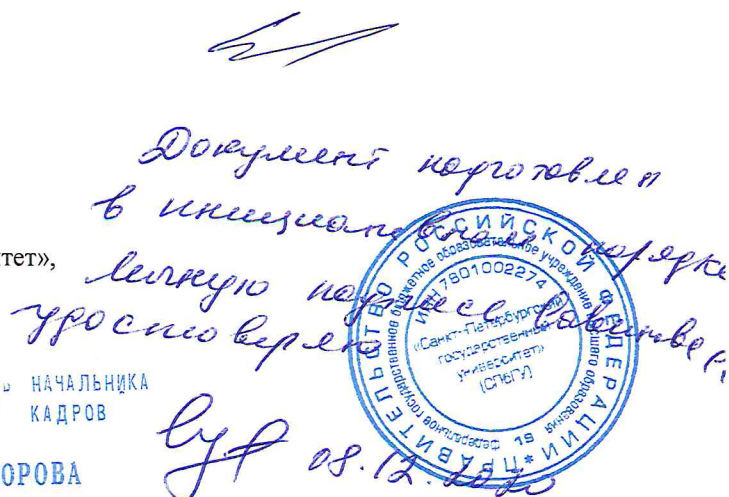 Документ подготовлен
в инициативном порядке
тет»,
личную подпись
удостоверяю
НАЧАЛЬНИКА
КАДРОВ
ОРОВА
08.12.2020
ПРАВИТЕЛЬСТВО РОССИЙСКОЙ ФЕДЕРАЦИИ *
федеральное государственное бюджетное образовательное учреждение высшего образования
ИНН 7801002274
«Санкт-Петербургский
государственный
университет»
(СПбГУ)
19